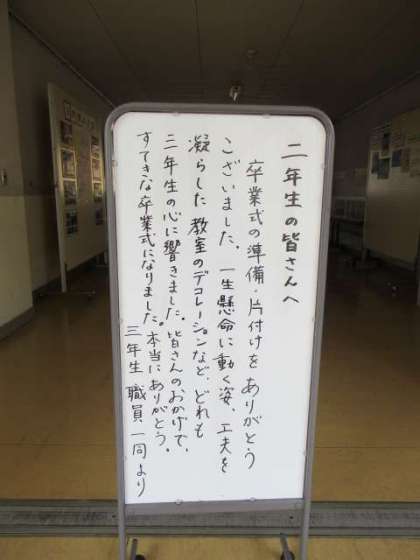 二年生の皆さんへ
卒業式の準備、片付けをありがとう
ございました。一生懸命に動く姿、工夫を
凝らした教室のデコレーションなど、どれも
三年生の心に響きました。皆さんのおかげで、
すてきな卒業式になりました。本当にありがとう。
三年生 職員一同より